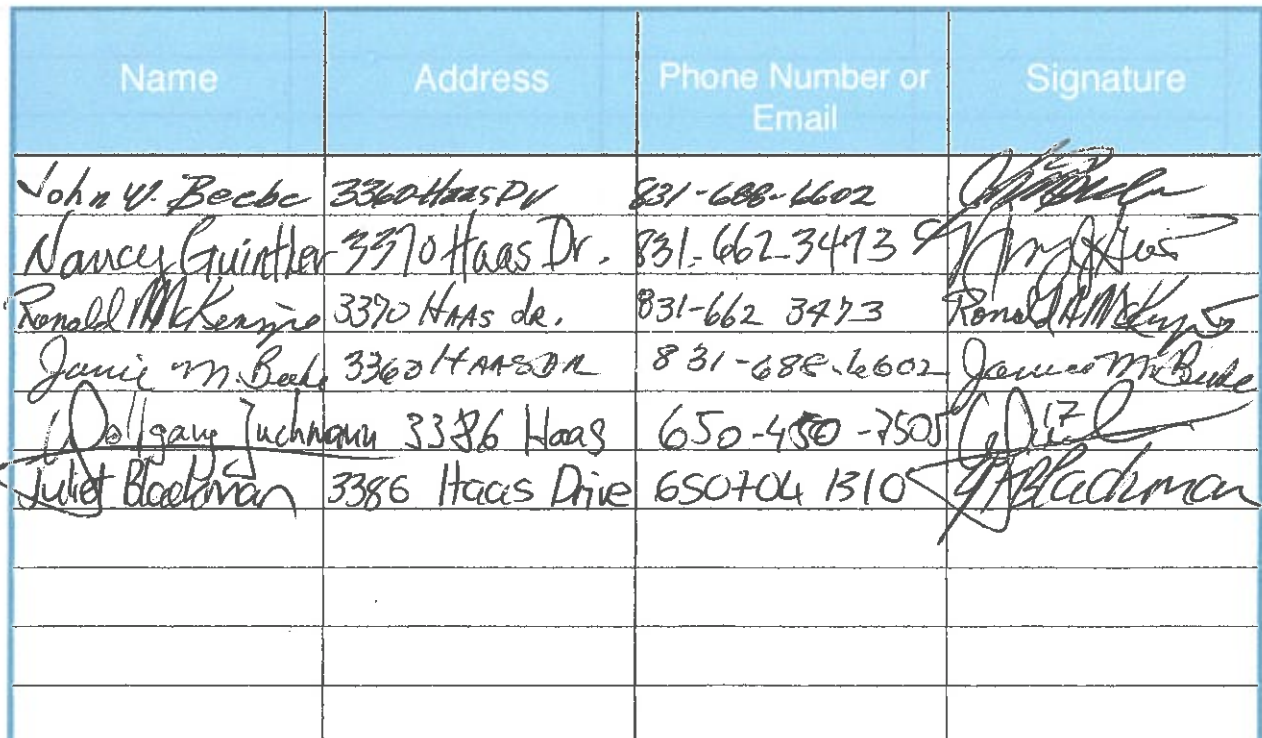 Name Address Phone Number or Email Signature
John V. Beebe 3360 Haas Dr 831-688-6602
Nancy Guinther 3370 Haas Dr. 831-662-3473
Ronald McKenzie 3370 HAAS dr. 831-662 3473 Ronald A McKenzie
Janice M. Beebe 3360 HAAS DR 831-688-6602 Janice M Beebe
Wolfgang Tuchmann 3386 Haas 650-450-7505
Juliet Blackman 3386 Haas Drive 650 704 1310 Blackman